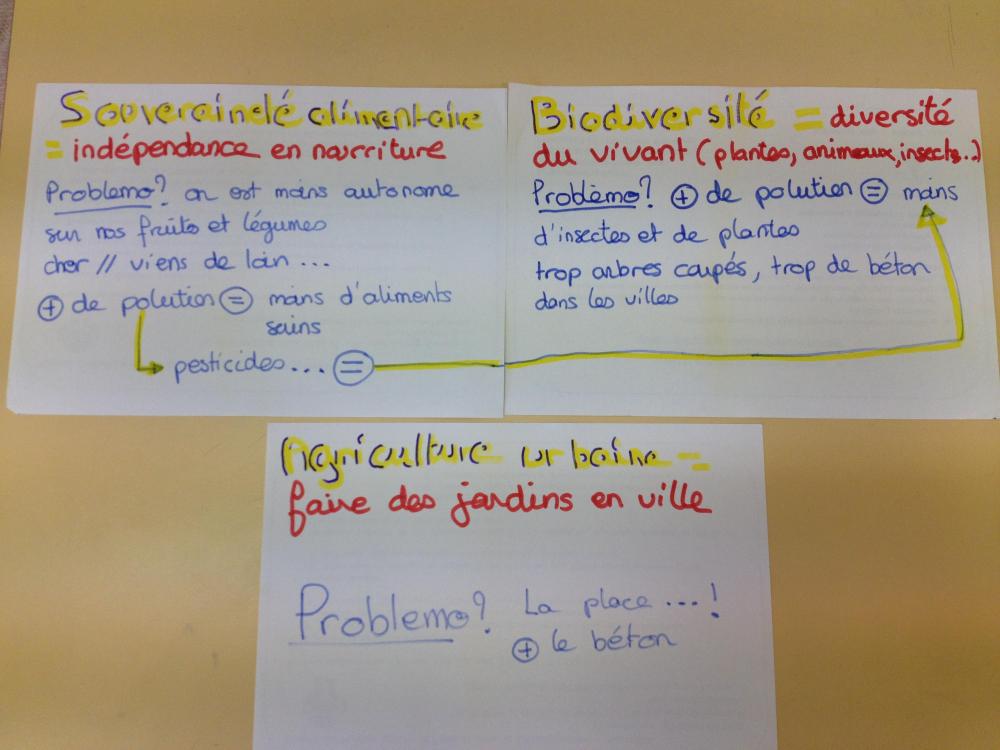 Souveraineté alimentaire
= indépendance en nourriture
Problemo? on est moins autonome
sur nos fruits et légumes
cher // viens de loin ...
+ de polution = moins d'aliments
sains
pesticides... =
Biodiversité = diversité
du vivant (plantes, animaux, insects..)
Problèmo? + de polution = moins
d'insectes et de plantes
trop arbres coupés, trop de béton
dans les villes
Agriculture urbaine =
faire des jardins en ville
Problemo? La place ...!
+ le béton